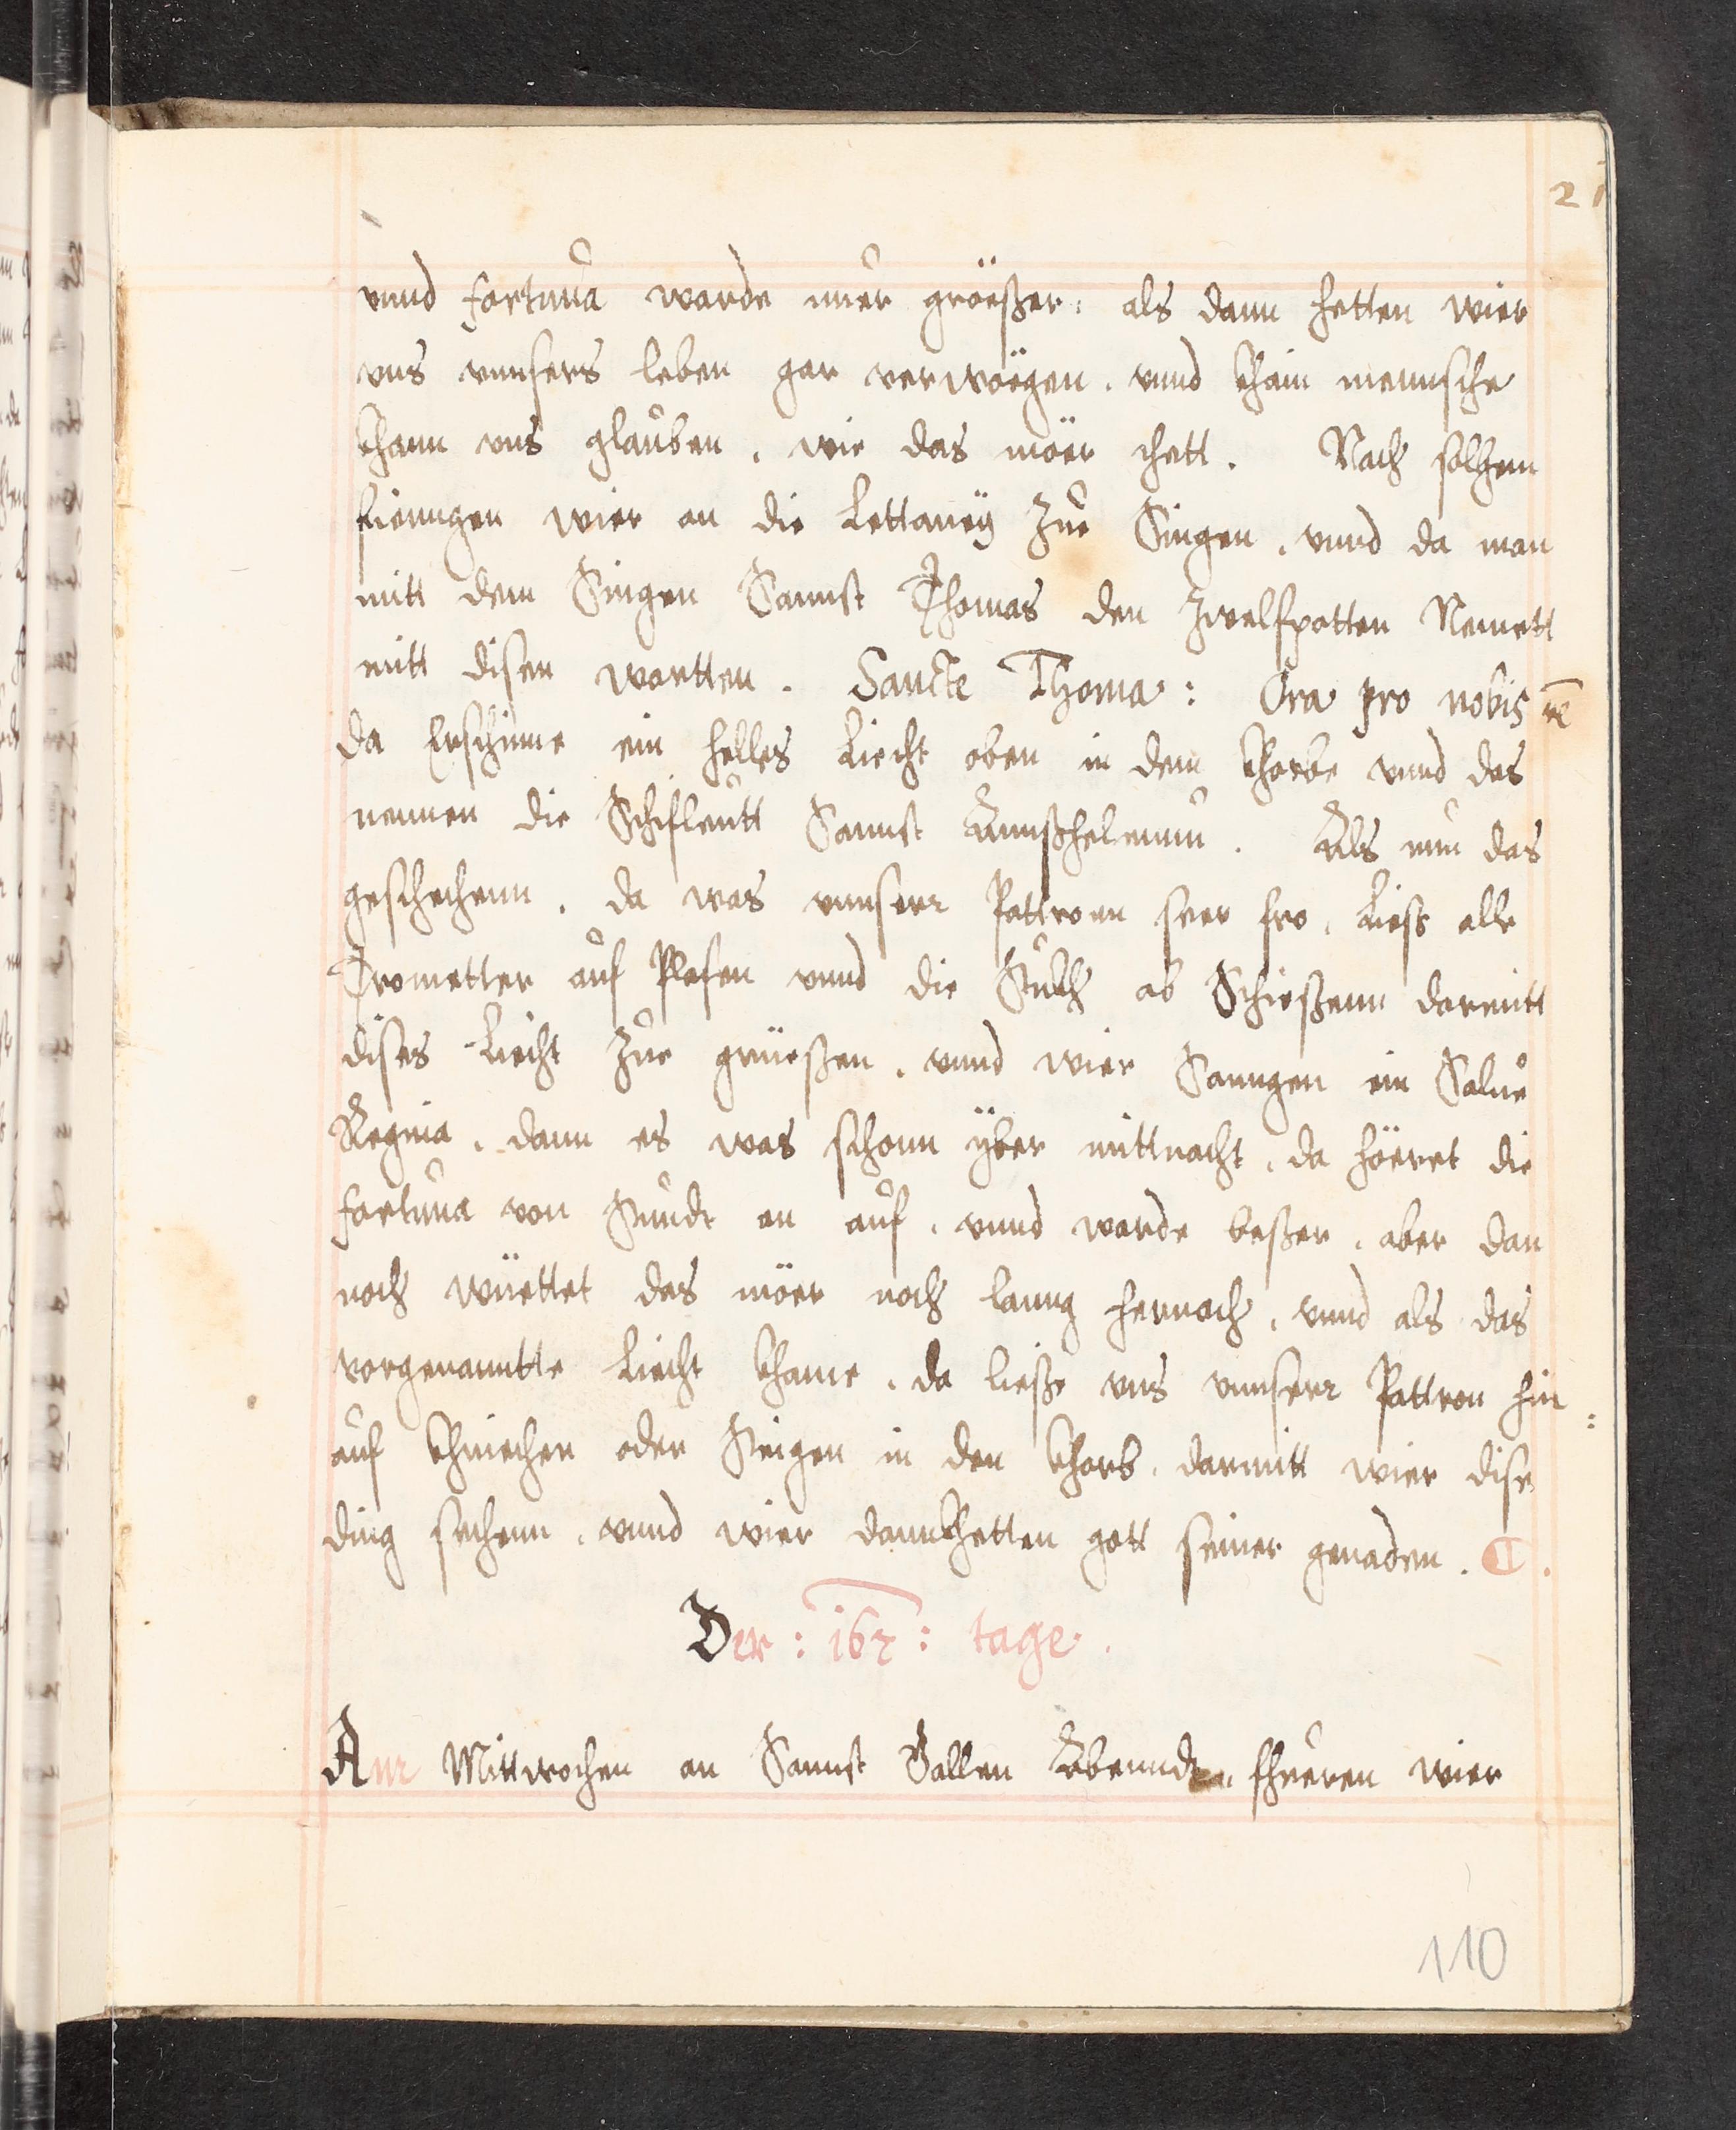 21
vnnd fortuna warde nuer gröeßer: als dann hetten wier
vns vnnsers leben gar verwögen. vnnd khain mennsche
khann vns glauben, wie das möer thett. Nach solhem
fienngen wier an die Lettaneÿ Zue Singen, vnnd da man
mitt dem Singen Sannst Thomas den Zwelfpotten Nemett
mitt disen wortten. Sancte Thoma: Ora pro nobis
da Erschine ein helles Liecht oben in dem khorbe vnnd das
nennen die Schifleutt Sannst Annßhelmm. Als nun das
geschechenn, da was vnnserr Pattronn seer fro, Liess alle
Trometter auf Plasen vnnd die Stukh ab Schießenn darmitt
dises Liecht Zue grüeßen, vnnd wier Sanngen ein Salue
Regina, dann es was schonn ÿber mittnacht, da höeret die
fortuna von Stundt an auf, vnnd warde beßer, aber dan
noch wüettet das möer noch lanng hernach, vnnd als das
vorgenanntte Liecht khame, da ließe vns vnnserr Pattron hin:
auf khriechen oder Steigen in den khorb, darmitt wier dise
ding sechenn, vnnd wier dannkhetten gott seiner genaden. C.
Der: 167: tage.
Am Mittwochen an Sannst Gallen Abenndt, fhueren wier
110